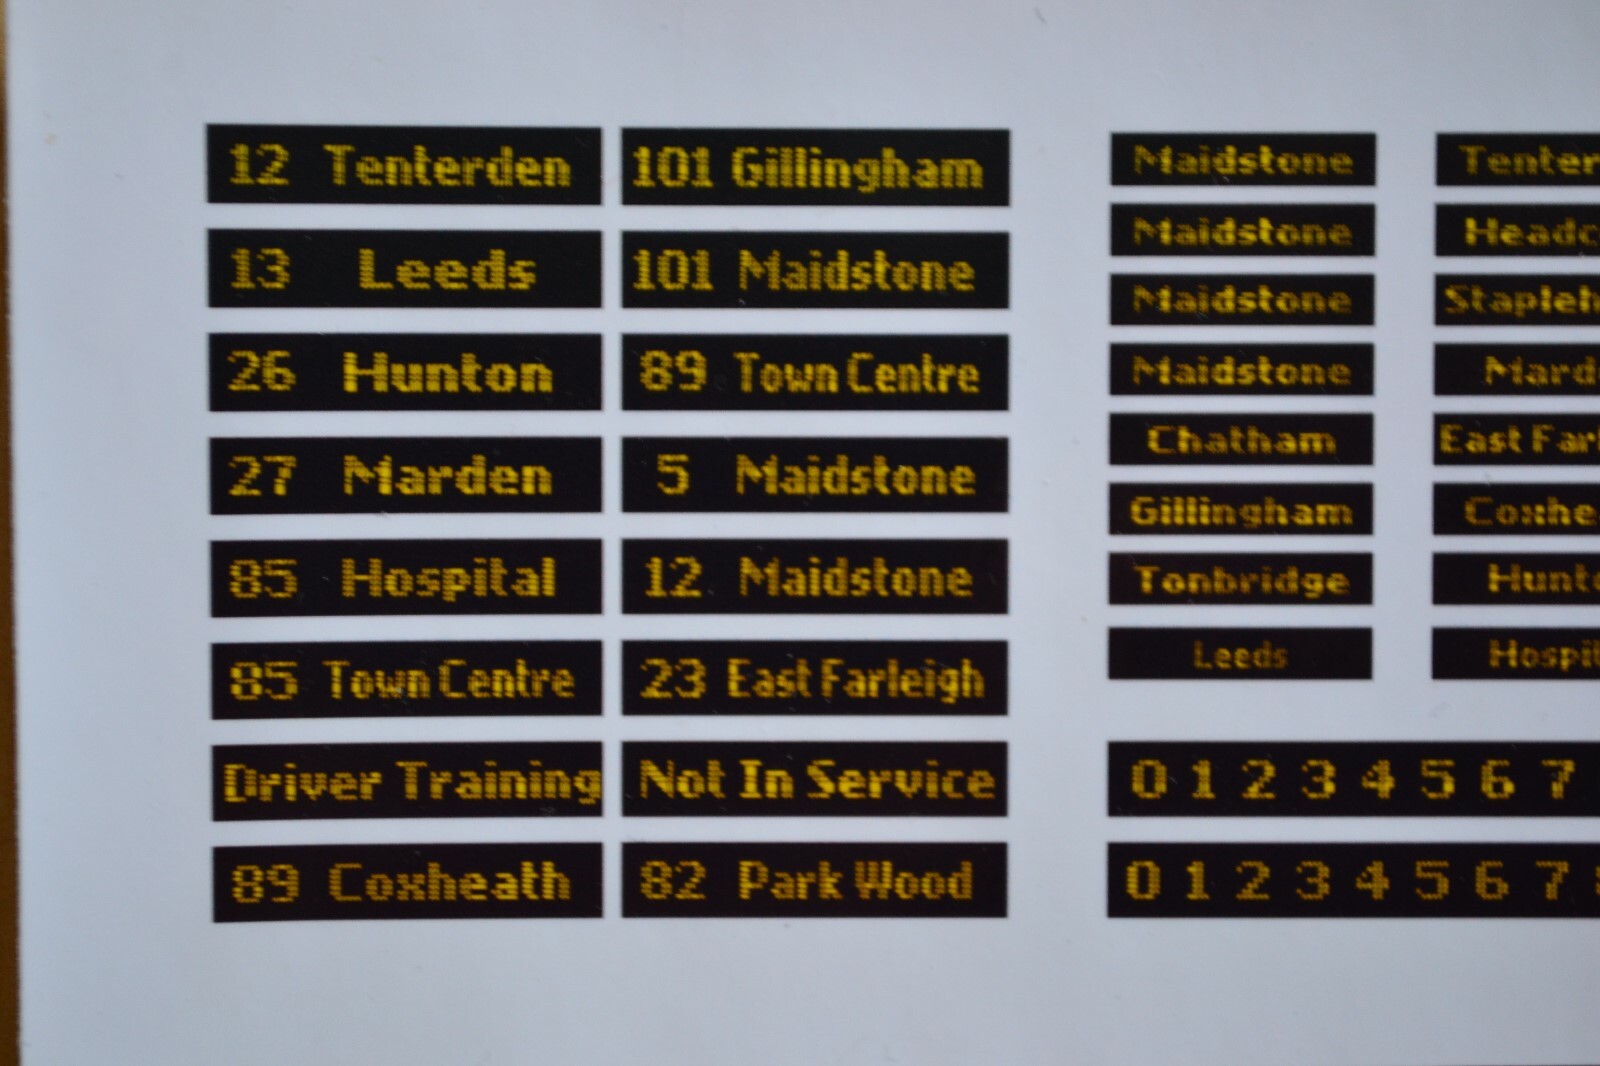 12 Tenterden
13 Leeds
26 Hunton
27 Marden
85 Hospital
85 Town Centre
Driver Training
89 Coxheath
101 Gillingham
101 Maidstone
89 Town Centre
5 Maidstone
12 Maidstone
23 East Farleigh
Not In Service
82 Park Wood
Maidstone
Maidstone
Maidstone
Maidstone
Chatham
Gillingham
Tonbridge
Leeds
Tenter
Headc
Stapleh
Mard
East Farl
Coxhe
Hunt
Hospit
0 1 2 3 4 5 6 7
0 1 2 3 4 5 6 7